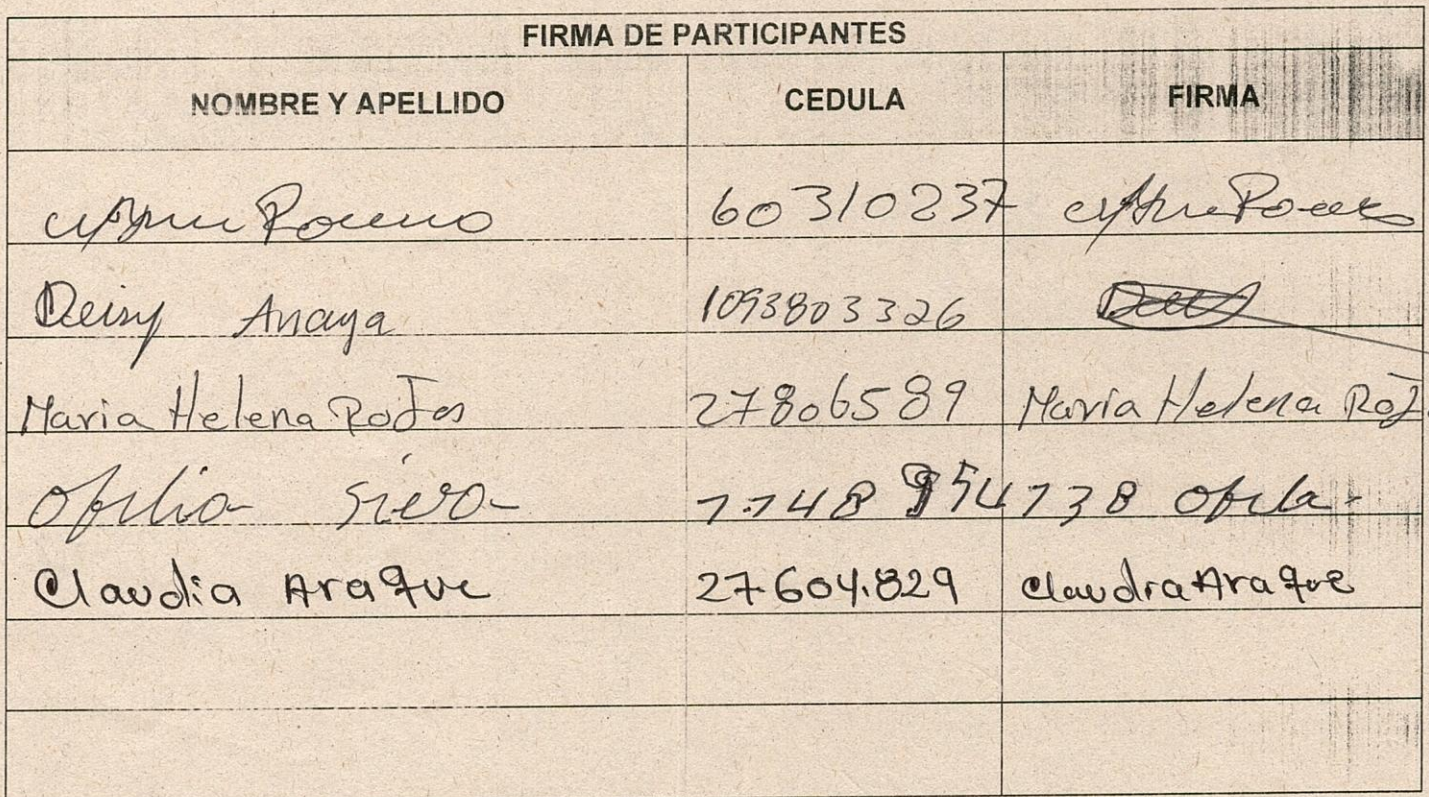 FIRMA DE PARTICIPANTES
NOMBRE Y APELLIDO CEDULA FIRMA
60310237
Deisy Anaya 1093803326
Maria Helena Rojas 27806589 Maria Helena Roj
Ofelia Siera 1.148 954138 Ofela
Claudia Araque 27.604.829 Claudia Araque